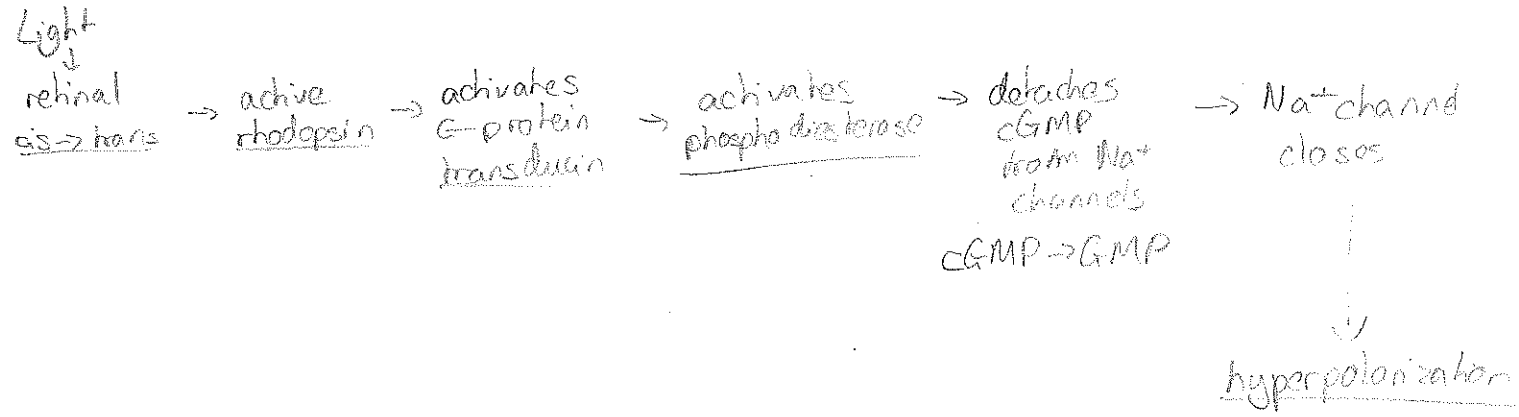 Light
↓
retinal
cis → trans
→ active
rhodopsin
→ activates
G-protein
transducin
→ activates
phosphodiesterase
→ detaches
cGMP
from Na⁺
channels
cGMP → GMP
→ Na⁺ channel
closes
↓
hyperpolarization